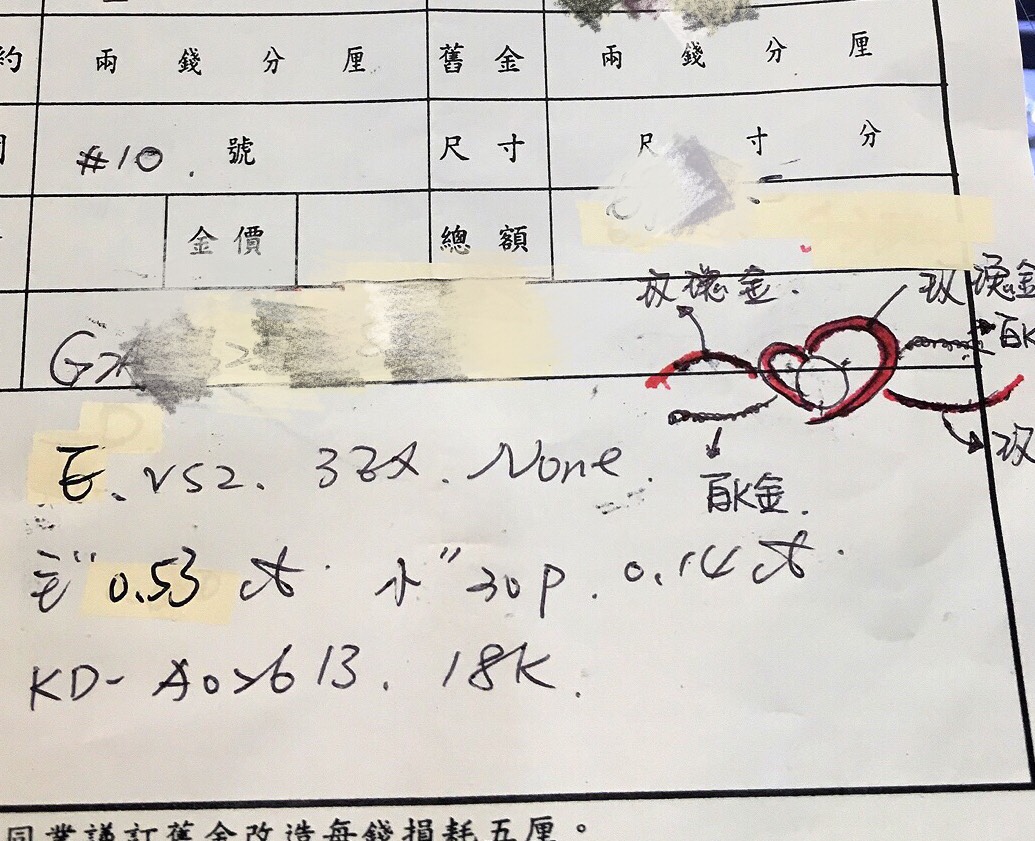 約 兩 錢 分 厘 舊 金 兩 錢 分 厘
#10. 號 尺 寸 尺 寸 分
金 價 總 額
玫瑰金. 玫瑰金
白K
G
玫
E. VS2. 3EX. None.
白K金.
主" 0.53 ct. 小" 30p. 0.14 ct.
KD- A0>613. 18K.
同業議訂舊金改造每錢損耗五厘。